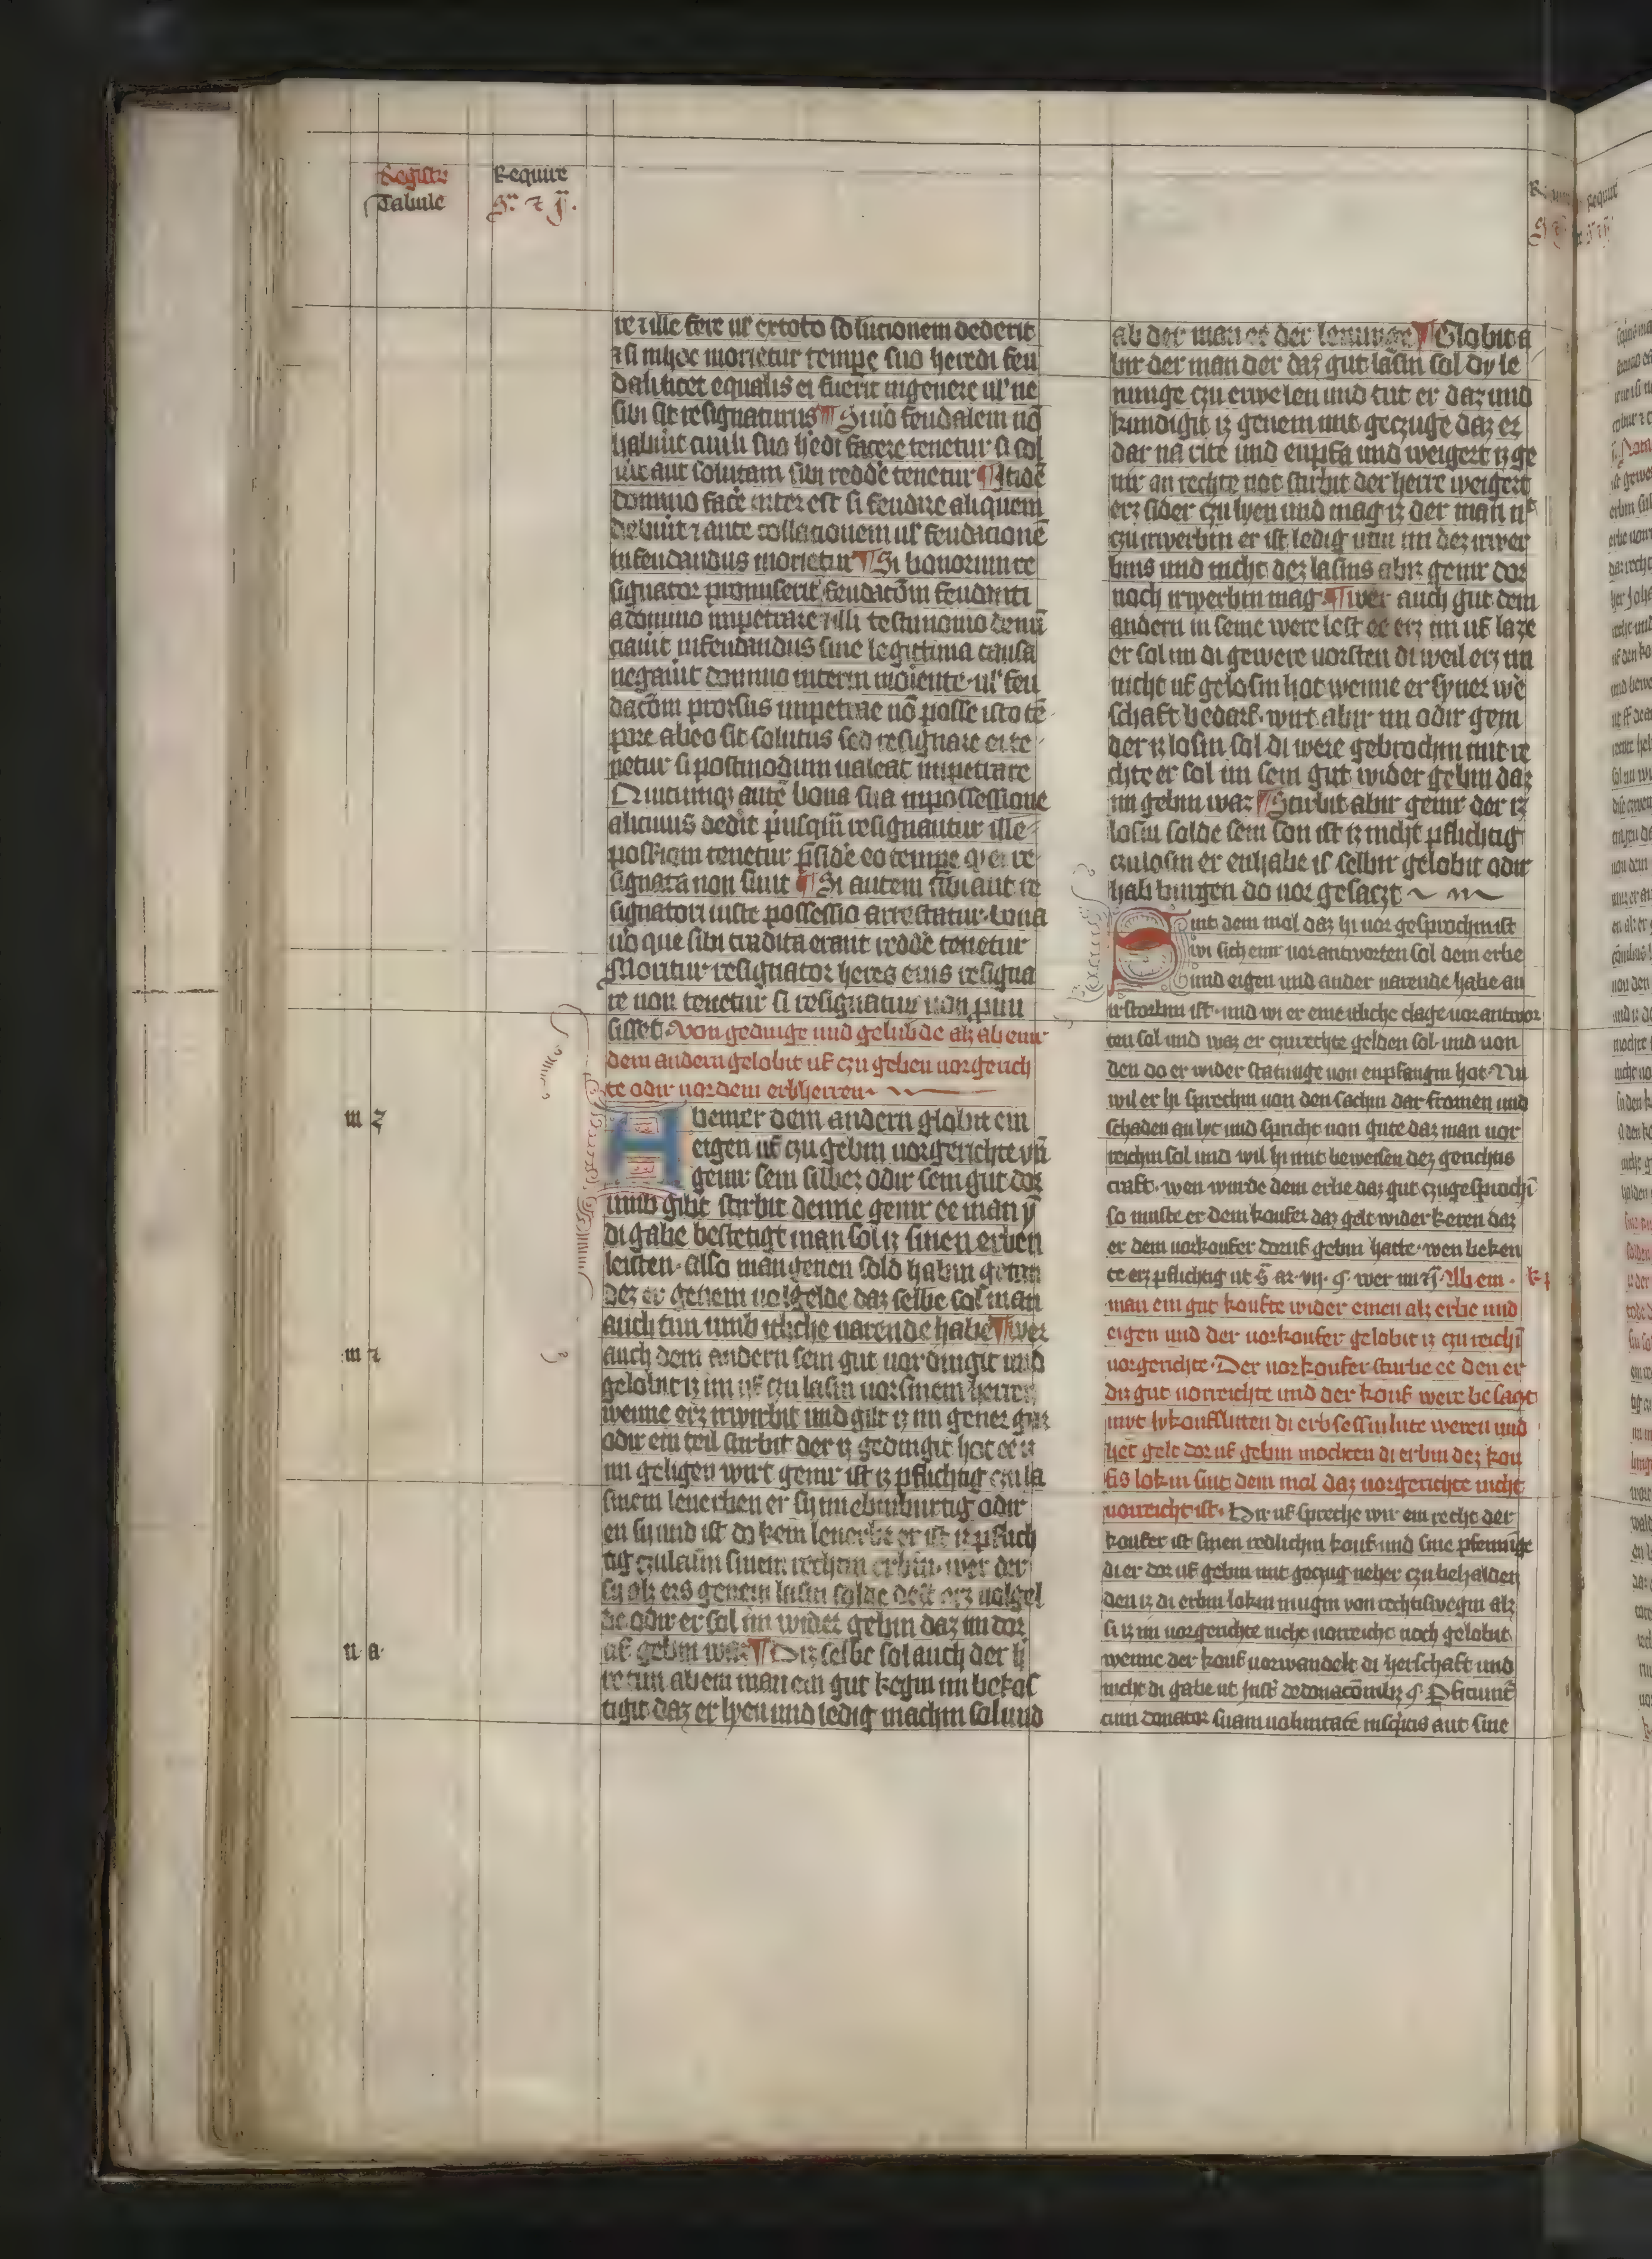 Registr
Tabule
Require
re z ille fere ul' ex toto solucionem dederit
z si in hoc morietur tempe suo heredi feu
dali licet equalis ei fuerit in genere ul' ne
sibi sit resignaturus ¶ Si uō feudalem nō
habuit ciuili suo h'edi facere tenetur si sol
uit aut solutam sibi redde tenetur ¶ Itidē
domino face interest si feudare aliquem
debuit z ante collacionem ul' feudacionē
infeudandus morietur ¶ Si bonorum re
signator promiserit feudacōm feudanti
a domino impetrare z illi testimonio denū
ciauit infeudandus sine legittima causa
negauit domino interim moriente ul' feu
dacōm prorsus impetrae nō posse isto tē
pore ab eo sit solutus sed resignare ei te
netur si postmodum ualeat impetrare
Quicumqz autē bona sua in possessione
alicuius dedit p'usqm resignantur ille
poss'iom tenetur p'side eo tempe q' ei re
signata non sunt ¶ Si autem sibi aut re
signatori iuste possessio arrestatur bona
uō que sibi tradita erant redde tenetur
Moritur resignator heres eius resigna
re non tenetur si resignatur non pmi
sisset. Von gedinge und gelubde alz ab einr
dem andern gelobit uf czu geben uorgerich
te odir uor dem erbherren
m z
Ab einer dem andern globit ein
eigen uf czu gebin uorgerichte vn̄
genir sein silber odir sein gut dor
umb gibit stirbit denne genir ee man ÿ
di gabe bestetigt man sol iz sinen erben
leisten. also man genen sold habin getan
dez er genem uolgelde daz selbe sol man
auch tun umb itliche uarende habe ¶ wer
m z
auch dem andern sein gut uordingit und
gelobit iz im uf czu lasin uor sinem herren
wenne erz irwirbit und gilt iz im gener gar
odir ein teil stirbit der iz gedingit hot ee iz
im geligen wirt genir ist iz pflichtig czu la
sinem lenerben er sy im ebinburtig odir
en sy und ist do kein lenerbe er ist iz pflich
tig czulasin sinem rechten erbin. wer der
sy alz ers genem lasin solde deit erz uolgel
de odir er sol im wider gebin daz im dor
n a
uf gebin wer ¶ Diz selbe sol auch der h
re tun ab em man ein gut kegin im bekos
tigit daz er lyen und ledig machin sol und
ab der man er der lenunge ¶ Globit a
bir der man der daz gut lasin sol dy le
nunge czu erwelen und tut er daz und
kundigit iz genem mit geczuge daz er
dar na rite und enpfa und weigert iz ge
nir an rechte not stirbit der herre weigert
erz sider czu lyen und mag iz der man n
czu irwerbin er ist ledig um im dez irwer
bins und nicht dez lasins abir genir dor
noch irwerbin mag. ¶ wer auch gut dem
andern in seine were lest ee erz im uf laze
er sol im di gewere uorsten di weil erz im
nicht uf gelosin hot wenne er syner we
schaft bedarf. wirt abir im odir gem
der iz losin sol di were gebrochin mit re
chte er sol im sein gut wider gebin daz
im gebin waz ¶ Stirbit abir genir der iz
losin solde sein son ist iz nicht pflichtig
czu losin er enhabe is selbir gelobit odir
hab burgen do uor gesaczt
Sint dem mol daz hi uor gesprochin ist
wi sich einr uorantworten sol dem erbe
und eigen und ander uarende habe an
irstorbin ist. und wi er eine itliche clage uorantwor
ten sol und waz er czurechte gelden sol. und uon
den do er wider statunge uon enpfangin hot. Nu
wil er hi sprechin uon den sachin dar fromen und
schaden an lyt und spricht uon gute daz man uor
reichin sol und wil hi mit beweisen dez gerichtis
craft. wen wurde dem erbe daz gut czugesprochī
so muste er dem koufer daz gelt wider keren daz
er dem uorkoufer doruf gebin hatte. wen beken
te erz pflichtig ut s̄ ar. vij. q. wer im ij. Ab ein.
man ein gut koufte wider einen alz erbe und
eigen und der uorkoufer gelobit iz czu reichī
uorgerichte. Der uorkoufer sturbe ee den er
diz gut uorreichte und der kouf were besaczt
mit lykouflluten di erbsessin lute weren und
het gelt dor uf gebin mochten di erbin dez kou
fis lokin sint dem mol daz uorgerichte nicht
uorreicht ist. Dir uf spreche wir ein recht der
koufer ist sinen redlichin kouf und sine pfennīge
di er dor uf gebin mit geczug neher czu behalden
den iz di erbin lokin mugin von rechtiswegin alz
si iz im uorgerichte nicht uorreicht noch gelobit
wenne der kouf uorwandelt di herschaft und
nicht di gabe ut Insti. de donacōnibz q. P'ficiunt
cum donator suam uoluntatē in sc'ptis aut sine